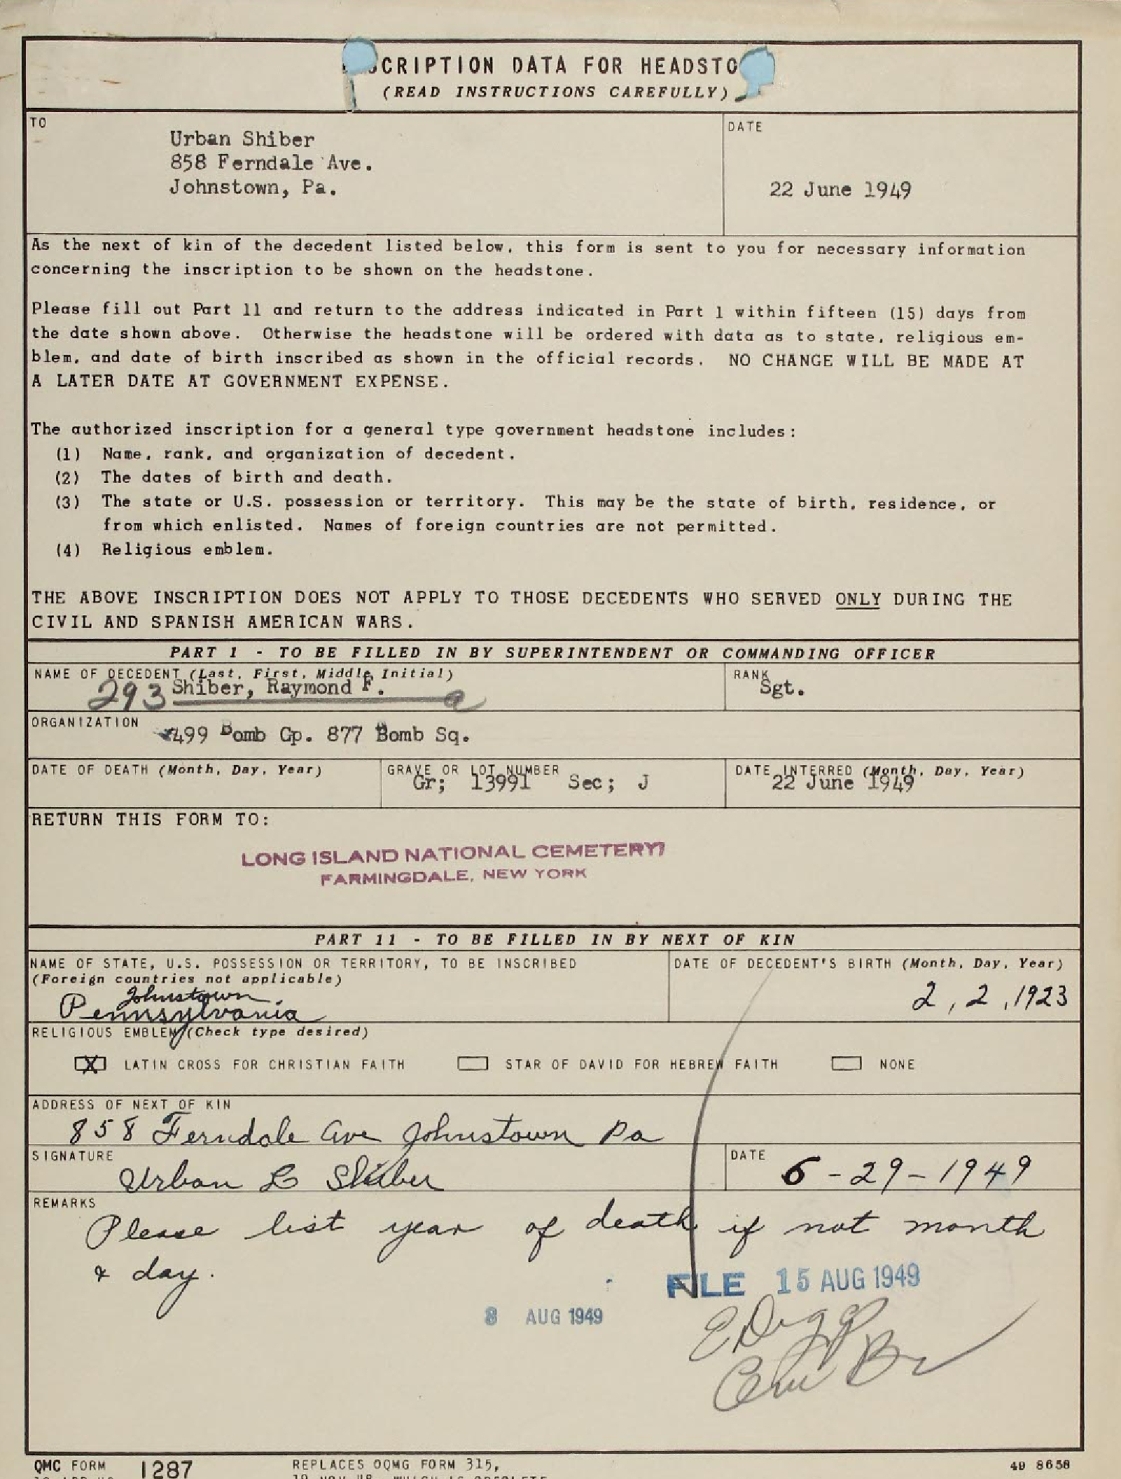 SCRIPTION DATA FOR HEADSTO
(READ INSTRUCTIONS CAREFULLY)
TO
Urban Shiber
858 Ferndale Ave.
Johnstown, Pa.
DATE
22 June 1949
As the next of kin of the decedent listed below, this form is sent to you for necessary information
concerning the inscription to be shown on the headstone.
Please fill out Part 11 and return to the address indicated in Part 1 within fifteen (15) days from
the date shown above. Otherwise the headstone will be ordered with data as to state, religious em-
blem, and date of birth inscribed as shown in the official records. NO CHANGE WILL BE MADE AT
A LATER DATE AT GOVERNMENT EXPENSE.
The authorized inscription for a general type government headstone includes:
(1) Name, rank, and organization of decedent.
(2) The dates of birth and death.
(3) The state or U.S. possession or territory. This may be the state of birth, residence, or
from which enlisted. Names of foreign countries are not permitted.
(4) Religious emblem.
THE ABOVE INSCRIPTION DOES NOT APPLY TO THOSE DECEDENTS WHO SERVED ONLY DURING THE
CIVIL AND SPANISH AMERICAN WARS.
PART 1 - TO BE FILLED IN BY SUPERINTENDENT OR COMMANDING OFFICER
NAME OF DECEDENT (Last, First, Middle Initial)
293 Shiber, Raymond F. a
RANK
Sgt.
ORGANIZATION
499 Bomb Gp. 877 Bomb Sq.
DATE OF DEATH (Month, Day, Year)
GRAVE OR LOT NUMBER
Gr; 13991 Sec; J
DATE INTERRED (Month, Day, Year)
22 June 1949
RETURN THIS FORM TO:
LONG ISLAND NATIONAL CEMETERY
FARMINGDALE, NEW YORK
PART 11 - TO BE FILLED IN BY NEXT OF KIN
NAME OF STATE, U.S. POSSESSION OR TERRITORY, TO BE INSCRIBED
(Foreign countries not applicable)
Johnstown
Pennsylvania
DATE OF DECEDENT'S BIRTH (Month, Day, Year)
2, 2, 1923
RELIGIOUS EMBLEM (Check type desired)
X LATIN CROSS FOR CHRISTIAN FAITH STAR OF DAVID FOR HEBREW FAITH NONE
ADDRESS OF NEXT OF KIN
858 Ferndale Ave Johnstown Pa
SIGNATURE
Urban L Shiber
DATE
6-29-1949
REMARKS
Please list year of death if not month
& day.
FILE 15 AUG 1949
8 AUG 1949
QMC FORM 1287
REPLACES OQMG FORM 315,
49 8658